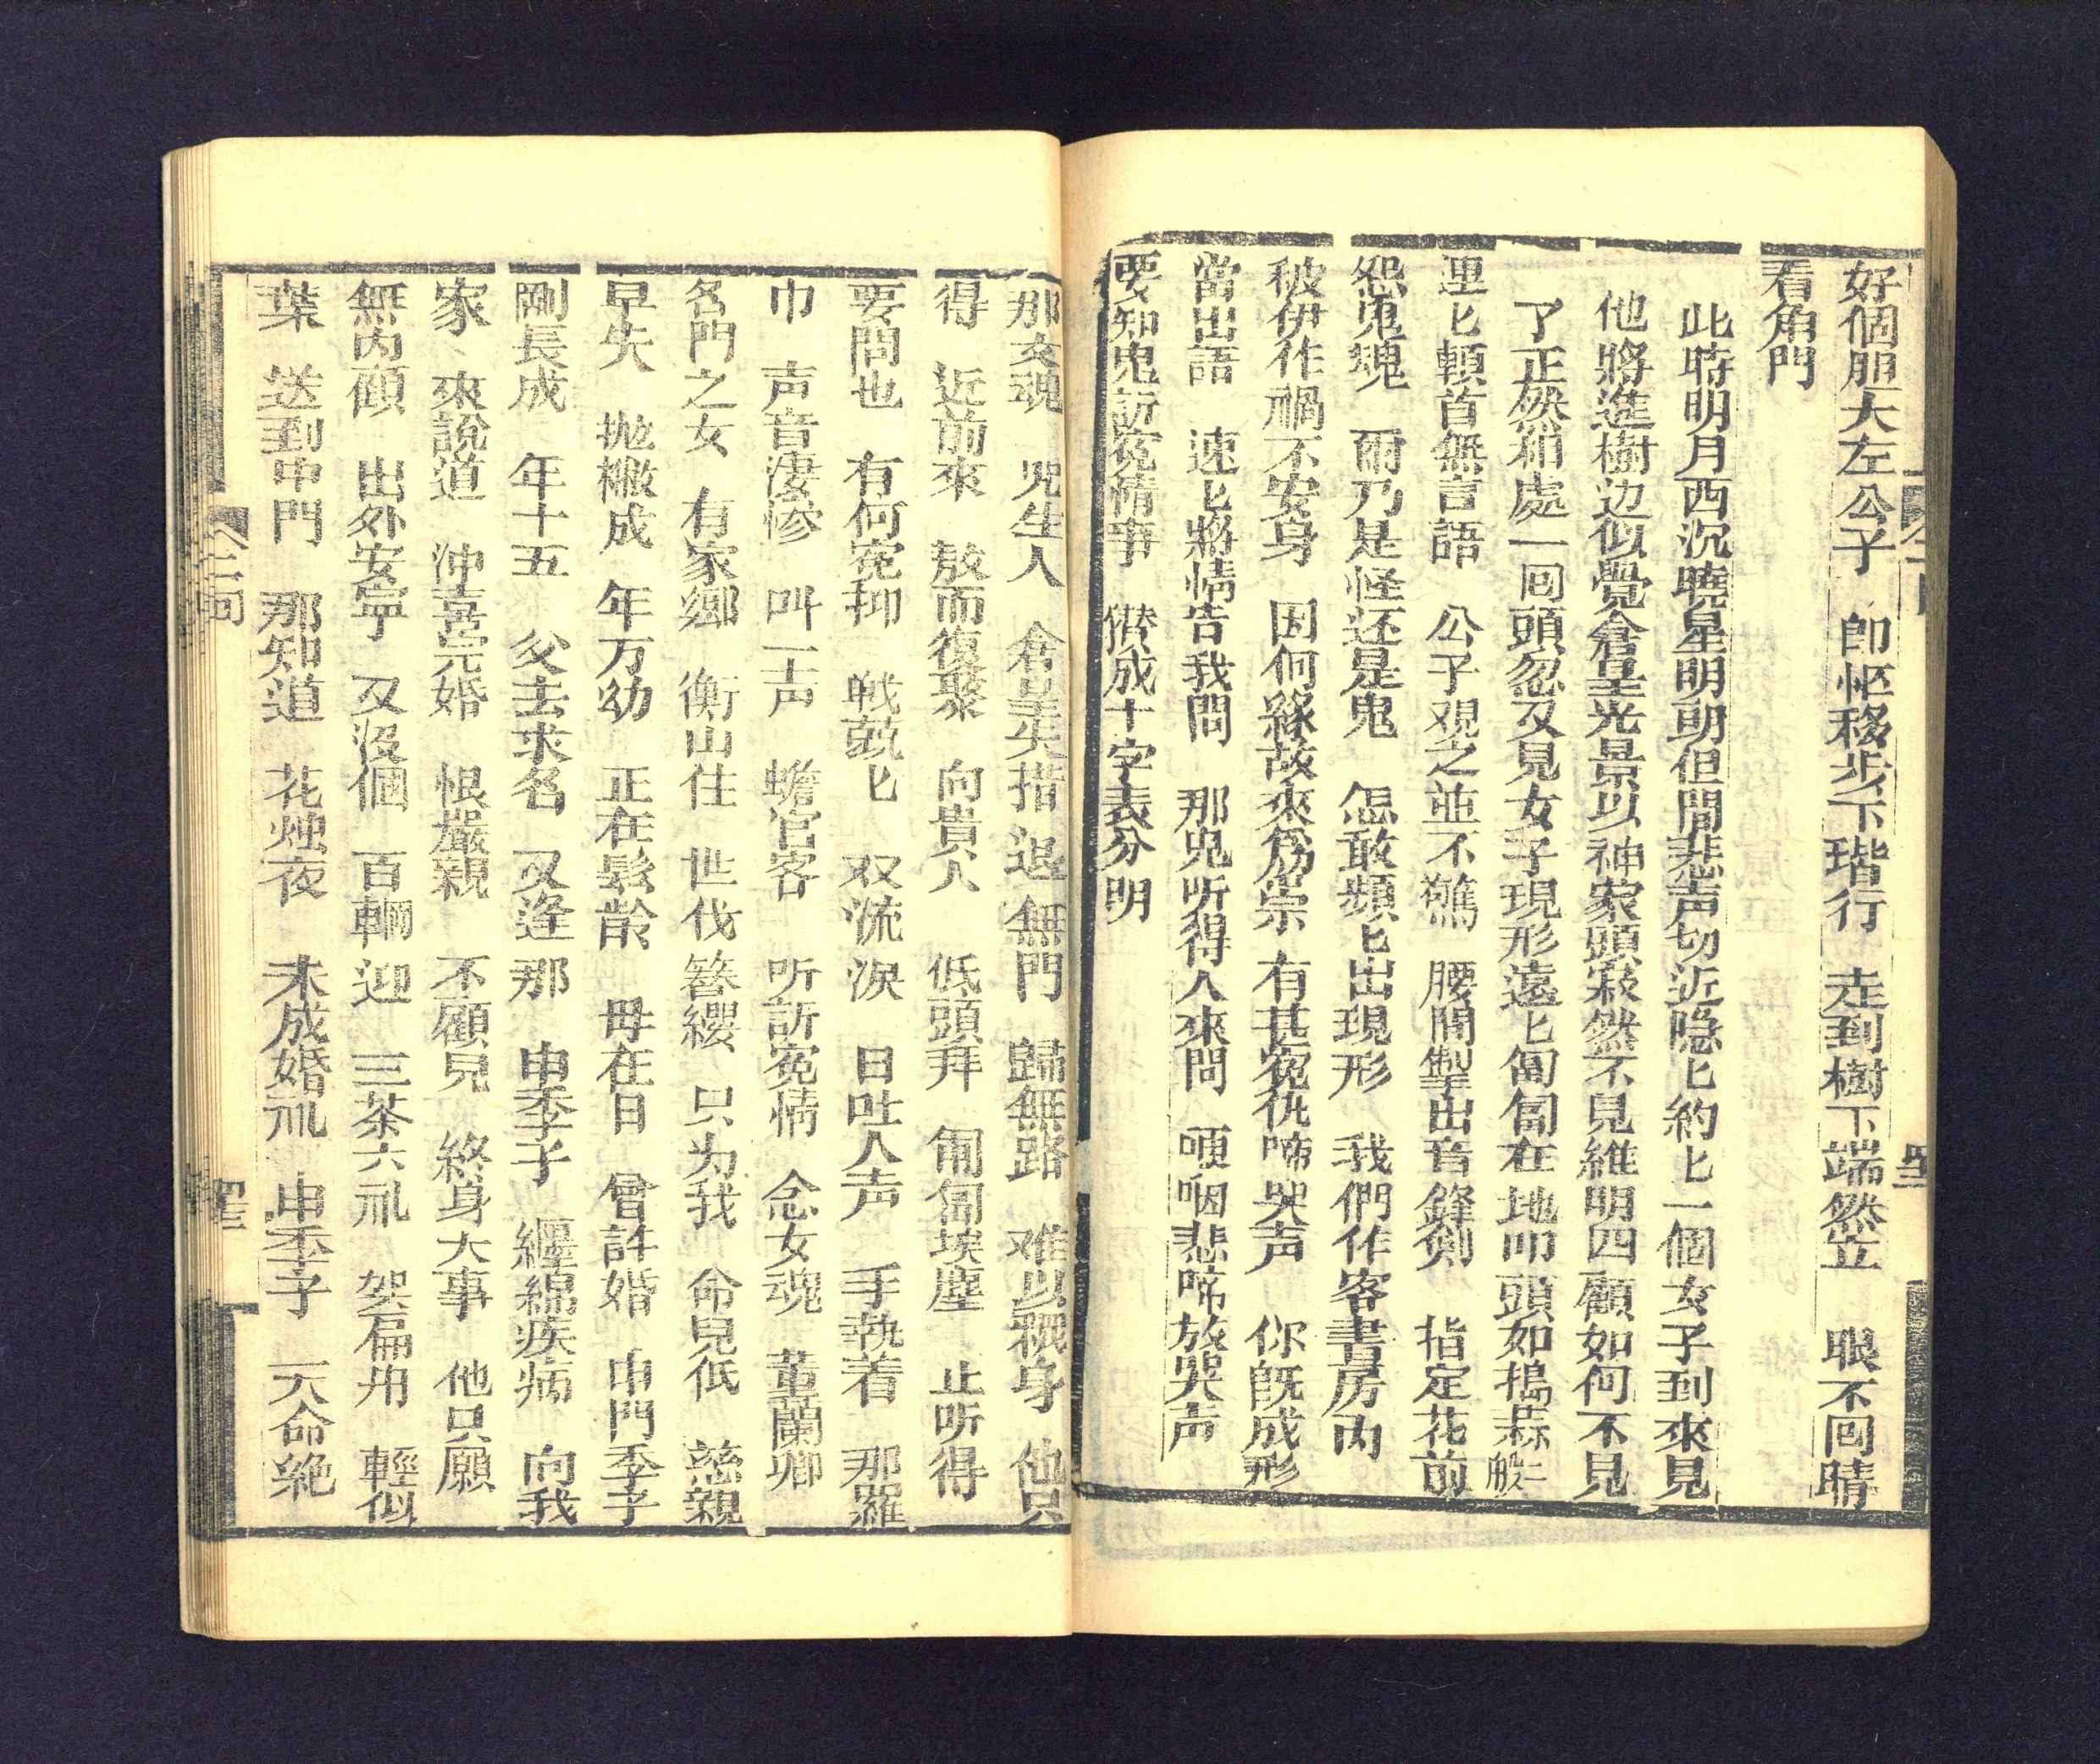 好個胆大左公子　即忙移步下堦行　走到樹下端然立　眼不回睛
看角門
此時明月西沉曉星明朗但聞悲声切近隐匕約匕一個女子到來見
他將進樹辺似覺倉皇光景以神蒙頭寂然不見維明四顧如何不見
了正然和處一回頭忽又見女子現形遠匕匐匐在地叩頭如搗蒜一般
連匕頓首無言語　公子观之並不驚　腰間掣出音鋒劍　指定花前
怨鬼塊　爾乃是怪还是鬼　怎敢頻匕出現形　我們作客書房内
被伊作禍不安身　因何緣故來為祟　有甚寃仇啼哭声　你既成形
當出語　速匕將情告我問　那鬼听得人來問　哽咽悲啼放哭声
要知鬼訴寃情事　攅成十字表分明
那女魂　咒生人　倉皇失措　退無門　歸無路　难以藏身　他只
得　近前來　敖而復聚　向貴人　低頭拜　匍匐埃塵　止听得
要問也　有何寃抑　戰兢匕　双流淚　日吐人声　手執着　那羅
巾　声音淒惨　叫一声　蟾宫客　听訴寃情　念女魂　董蘭卿
名門之女　有家鄉　衡山住　世伐簪纓　只为我　命兒低　慈親
早失　抛橄成　年万幼　正在髫齡　毋在日　曾許婚　申門季子
剛長成　年十五　父去求名　又逢那　申季子　纒綿疾病　向我
家　來說道　沖喜完婚　恨嚴親　不顧兒　終身大事　他只願
無内顧　出外安宁　又沒個　百輛迎　三茶六礼　架扁舟　輕似
葉　送到申門　那知道　花烛夜　未成婚礼　申季子　一天命絶
全二回